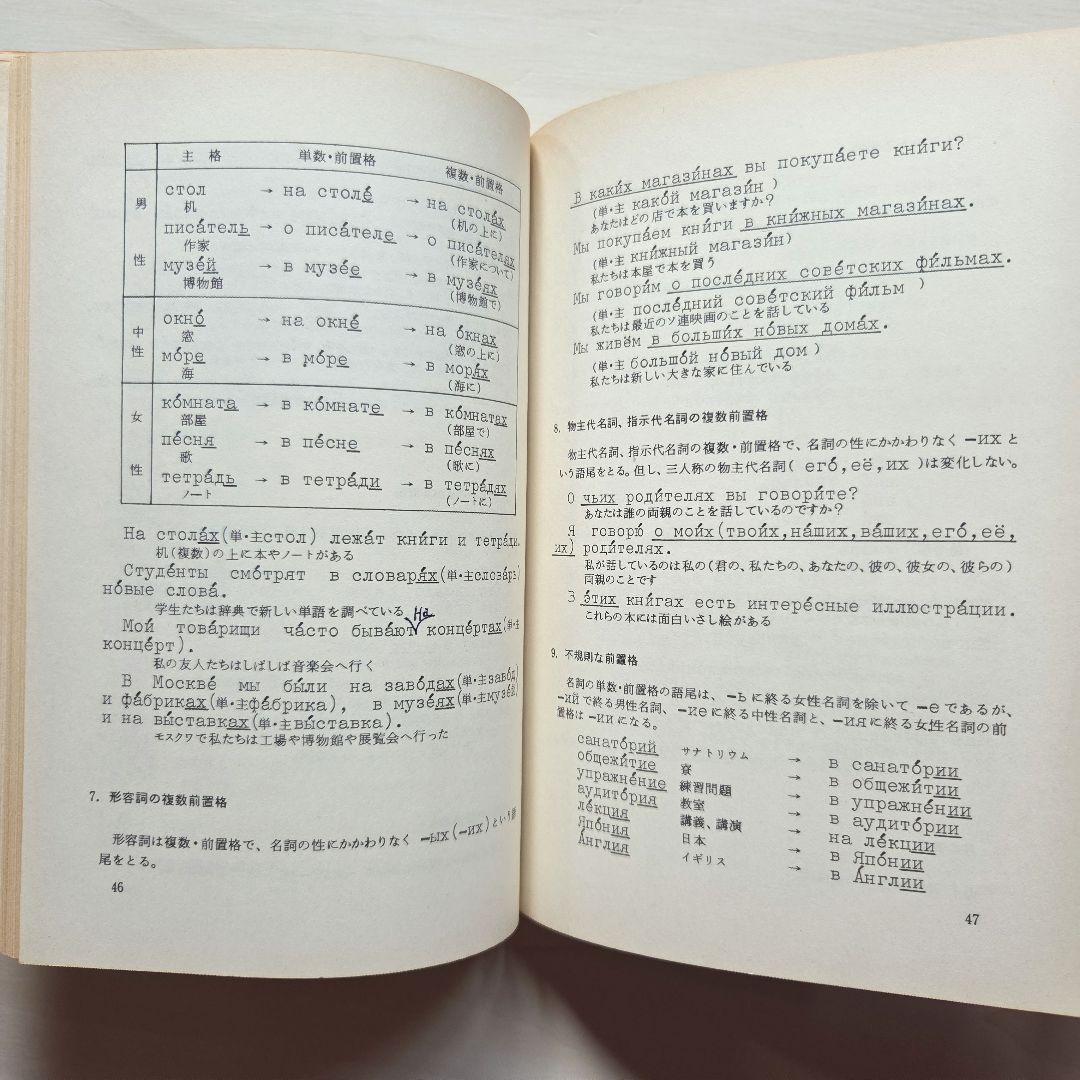 主格 単数・前置格 複数・前置格
男性
стол → на столе́ → на стола́х
机 (机の上に)
писа́тель → о писа́теле → о писа́телях
作家 (作家について)
музе́й → в музе́е → в музе́ях
博物館 (博物館で)
中性
окно́ → на окне́ → на о́кнах
窓 (窓の上に)
мо́ре → в мо́ре → в моря́х
海 (海に)
女性
ко́мната → в ко́мнате → в ко́мнатах
部屋 (部屋で)
пе́сня → в пе́сне → в пе́снях
歌 (歌に)
тетра́дь → в тетра́ди → в тетра́дях
ノート (ノートに)
На стола́х(単・主стол) лежа́т кни́ги и тетра́ди.
机(複数)の上に本やノートがある
Студе́нты смо́трят в словаря́х(単・主слова́рь)
но́вые слова́.
学生たちは辞典で新しい単語を調べている
на
Мои́ това́рищи ча́сто быва́ют конце́ртах(単・主
конце́рт).
私の友人たちはしばしば音楽会へ行く
В Москве́ мы бы́ли на заво́дах(単・主заво́д)
и фа́бриках(単・主фа́брика), в музе́ях(単・主музе́й)
и на вы́ставках(単・主вы́ставка).
モスクワで私たちは工場や博物館や展覧会へ行った
7. 形容詞の複数前置格
形容詞は複数・前置格で、名詞の性にかかわりなく -ых(-их)という語
尾をとる。
46
В каки́х магази́нах вы покупа́ете кни́ги?
(単・主 како́й магази́н )
あなたはどの店で本を買いますか?
Мы покупа́ем кни́ги в кни́жных магази́нах.
(単・主 кни́жный магази́н)
私たちは本屋で本を買う
Мы говори́м о после́дних сове́тских фи́льмах.
(単・主 после́дний сове́тский фи́льм )
私たちは最近のソ連映画のことを話している
Мы живём в больши́х но́вых дома́х.
(単・主 большо́й но́вый дом )
私たちは新しい大きな家に住んでいる
8. 物主代名詞、指示代名詞の複数前置格
物主代名詞、指示代名詞の複数・前置格で、名詞の性にかかわりなく -их と
いう語尾をとる。但し、三人称の物主代名詞( его́,её,их )は変化しない。
О чьих роди́телях вы говори́те?
あなたは誰の両親のことを話しているのですか?
Я говорю́ о мои́х(твои́х,на́ших,ва́ших,его́,её,
их) роди́телях.
私が話しているのは私の(君の、私たちの、あなたの、彼の、彼女の、彼らの)
両親のことです
В э́тих книгах есть интере́сные иллюстра́ции.
これらの本には面白いさし絵がある
9. 不規則な前置格
名詞の単数・前置格の語尾は、-ь に終る女性名詞を除いて -е であるが、
-ий で終る男性名詞、-ие に終る中性名詞と、-ия に終る女性名詞の前
置格は -ии になる。
санато́рий サナトリウム → в санато́рии
общежи́тие 寮 → в общежи́тии
упражне́ние 練習問題 → в упражне́нии
аудито́рия 教室 → в аудито́рии
ле́кция 講義、講演 → на ле́кции
Япо́ния 日本 → в Япо́нии
А́нглия イギリス → в А́нглии
47